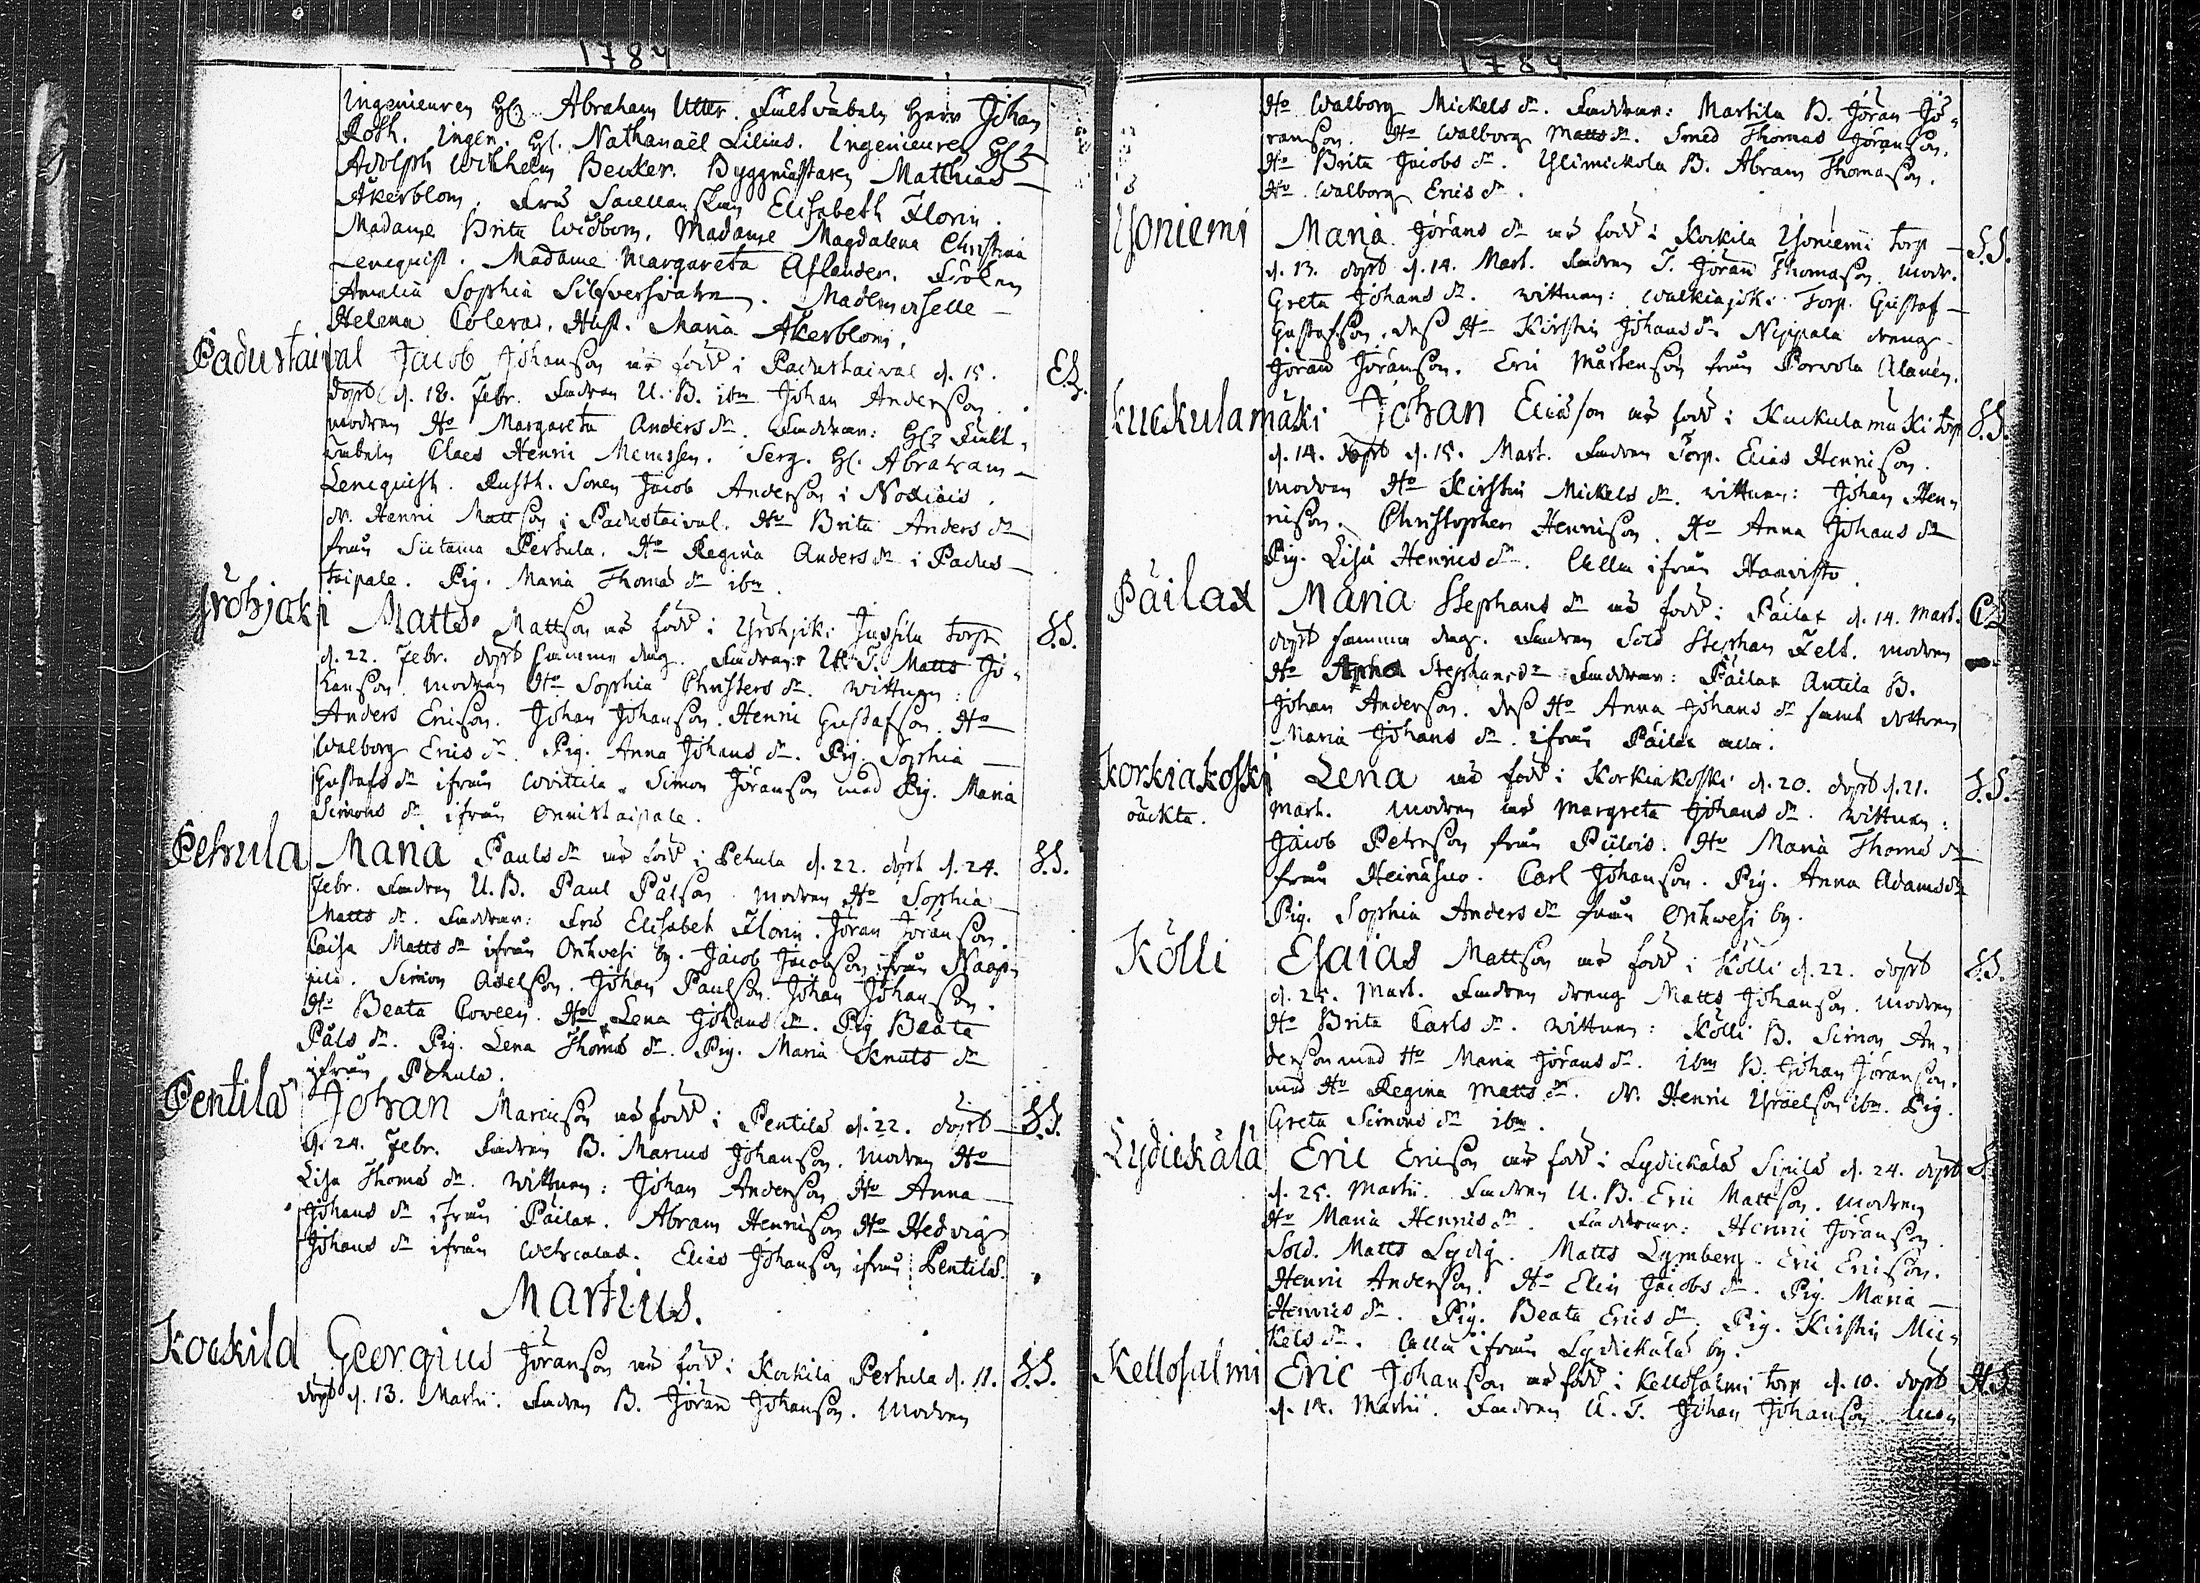 1784
Ingenieuren H:r Abraham Utter. Fältväbeln Herr Johan
Roth. Ingen. H:r Nathanaël Lilius. Ingenieuren H:r
Adolph Wilhelm Becker. Byggmästaren Matthias
Åkerblom. Fru Elisabeth Florin.
Madame Brita Widbom. Madame Magdalena Christina
Lencquist. Madame Margareta Aslander. Fröken
Amalia Sophia Silfversvahn. Mademoiselle
Helena Coleras. Hust. Maria Åkerblom.
Padustaival Jacob Johanson är född i Padustaival d. 15.
döpt d. 18. Febr. Fadren U. B. ibm Johan Anderson
modren H:o Margareta Anders dr. Faddrar: H:r Fält-
väbeln Claes Henric Memssen. Serg. H:r Abraham
Lencquist. Rusth. Sonen Jacob Anderson i Noxiais.
dr. Henric Mattson i Padustaival. H:o Brita Anders dr
från Siitama Perhula. H:o Regina Anders dr i Padus-
taipale. Pig. Maria Thomas dr ibm.
Yröhjoki Matts Mattson är född i Yröhjoki Jussila torp
d. 22. Febr. döpt samma dag. Fadren U. T. Matts Jo-
hanson. modren H:o Sophia Christers dr. wittnen:
Anders Ericson. Johan Johanson. Henric Gustafson. H:o
Walborg Erics dr. Pig. Anna Johans dr. Pig. Sophia
Gustafs dr ifrån Woittila. Simon Jöranson med Pig. Maria
Simons dr ifrån Onnistaipale.
Pehula Maria Pauls dr är född i Pehula d. 22. döpt d. 24. S.S.
Febr. Fadren U. B. Paul Pålson. modren H:o Sophia
Matts dr. Faddrar: Fru Elisabeth Florin. Jöran Jöranson.
Caisa Matts dr ifrån Onhvesi by. Jacob Jacobson ifrån Naap-
pila. Simon Axelson. Johan Paulson. Johan Johanson.
H:o Beata Coveen. H:o Lena Johans dr. Pig. Beata
Påls dr. Pig. Lena Thomas dr. Pig. Maria Knuts dr
ifrån Pehula.
Pentilä Johan Marcuson är född i Pentilä d. 22. döpt S.S.
d. 24. Febr. Fadren B. Marcus Johanson. modren H:o
Lisa Thomas dr. Wittnen: Johan Anderson H:o Anna
Johans dr ifrån Päilax. Abram Henricson H:o Hedvig
Johans dr ifrån Wehcalax. Elias Johanson ifrån Pentilä.
Martius.
Kockila Georgius Jöranson är född i Kockila Perhula d. 11. S.S.
döpt d. 13. Martii. Fadren B. Jöran Johanson. Modren
1784
H:o Walborg Mickels dr. Faddrar: Martila B. Jöran Jö-
ranson. H:o Walborg Matts dr. Smed Thomas Jöranson.
H:o Brita Jacobs dr. Ylimickola B. Abram Thomason.
H:o Walborg Erics dr.
Isoniemi Maria Jörans dr är född i Kockila Isoniemi torp S.S.
d. 13. döpt d. 14. Mart. Fadren T. Jöran Thomason modr.
Greta Johans dr. Wittnen: Walkiajoki Torp. Gustaf
Gustafson. dess H:o Kirstin Johans dr. Neppala dreng
Jöran Jöranson. Eric Mårtenson från Porvola Alaven.
Kuckulamäki Johan Eliason är född i Kuckulamäki torp S.S.
d. 14. döpt d. 15. Mart. Fadren Torp. Elias Henricson.
Modren H:o Kirstin Mickels dr. wittnen: Johan Hen-
ricson. Christopher Henricson. H:o Anna Johans dr
Pig. Lisa Henrics dr. Alla ifrån Haavisto.
Päilax Maria Stephans dr är född i Päilax d. 14. Mart.
döpt samma dag. Fadren Sold Stephan Felt. modren
H:o Stephans dr Faddrar: Päilax Antila B.
Johan Anderson. dess H:o Anna Johans dr samt dottren
Maria Johans dr. ifrån Päilax alla.
Korkiakoski Lena är född i Korkiakoski d. 20. döpt d. 21. S.S.
oäckta. Mart. Modren är Margreta Johans dr. Wittnen:
Jacob Peterson från Piilois. H:o Maria Thomas dr
från Heinäsuo. Carl Johanson. Pig. Anna Adams dr
Pig. Sophia Anders dr från Onhwesi by.
Kölli Esaias Mattson är född i Kölli d. 22. döpt S.S.
d. 25. Mart. Fadren dreng Matts Johanson. Modren
H:o Brita Carls dr. Wittnen: Kölli B. Simon An-
derson med H:o Maria Jörans dr. ibm B. Johan Jöranson.
med H:o Regina Matts dr. dr. Henric Israelson ibm. Pig.
Greta Simons dr ibm.
Lydiekälä Eric Ericson är född i Lydiekälä Sipilä d. 24. döpt S.
d. 25. Martii. Fadren U. B. Eric Mattson. Modren
H:o Maria Henrics dr. Faddrar: Henric Jöranson.
Sold. Matts Lydig. Matts Lymberg. Eric Ericson.
Henric Anderson. H:o Elin Jacobs dr. Pig. Maria
Henrics dr. Pig. Beata Erics dr. Pig. Kirstin Mic-
kels dr. Alla ifrån Lydiekälä by.
Kellosalmi Eric Johanson är född i Kellosalmi torp d. 10. döpt
d. 14. Martii. Fadren U. T. Johan Johanson. Mo-